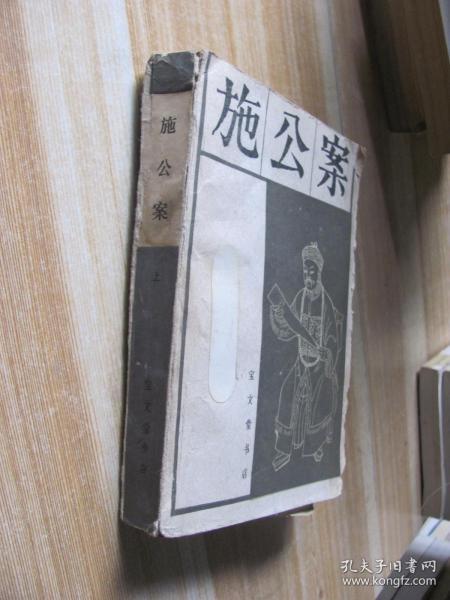 施公案
宝文堂书店
施公案
上
宝文堂书店
孔夫子旧书网
www.kongfz.com